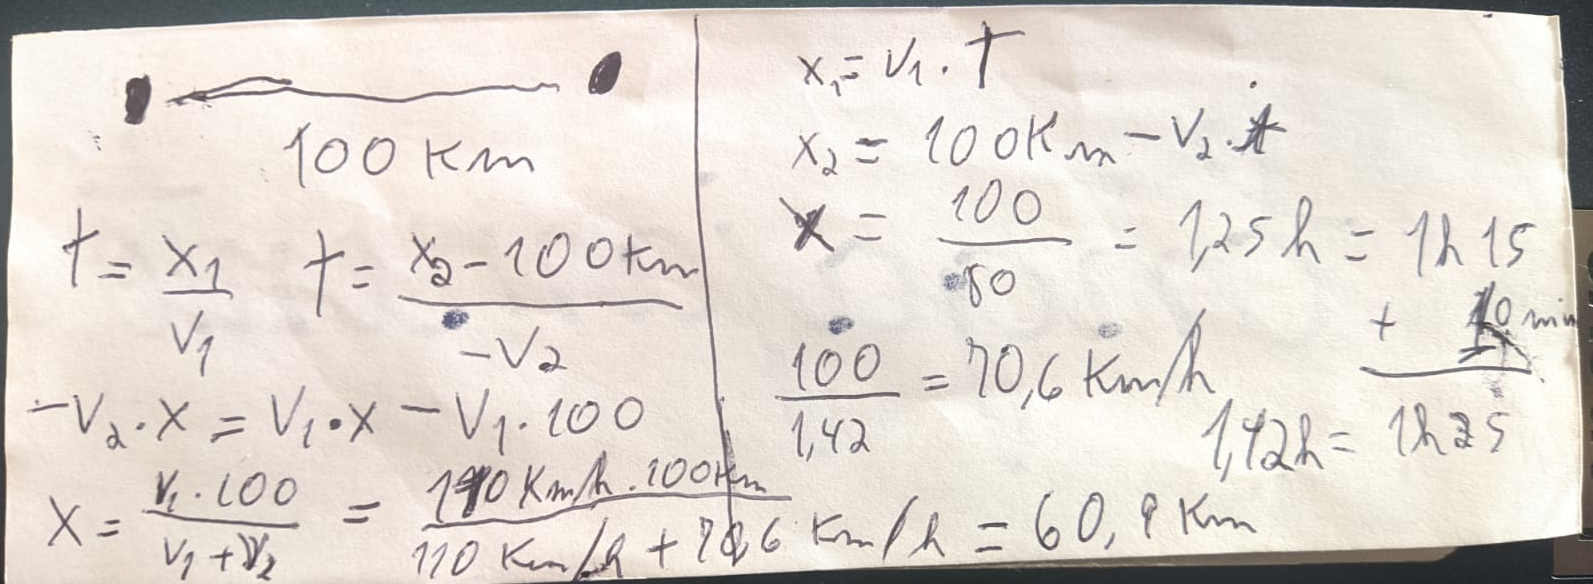 100 Km
t = x1/v1 t = x2 - 100 km/-v2
-v2 · x = v1 · x - v1 · 100
x = v1 · 100/v1 + v2 = 110 Km/h · 100 Km/110 Km/h + 70,6 Km/h = 60,9 Km
x1 = v1 · t
x2 = 100 Km - v2 · t
= 100/80 = 1,25 h = 1h 15
+ 10 min
100/1,42 = 70,6 Km/h
1,42h = 1h 25